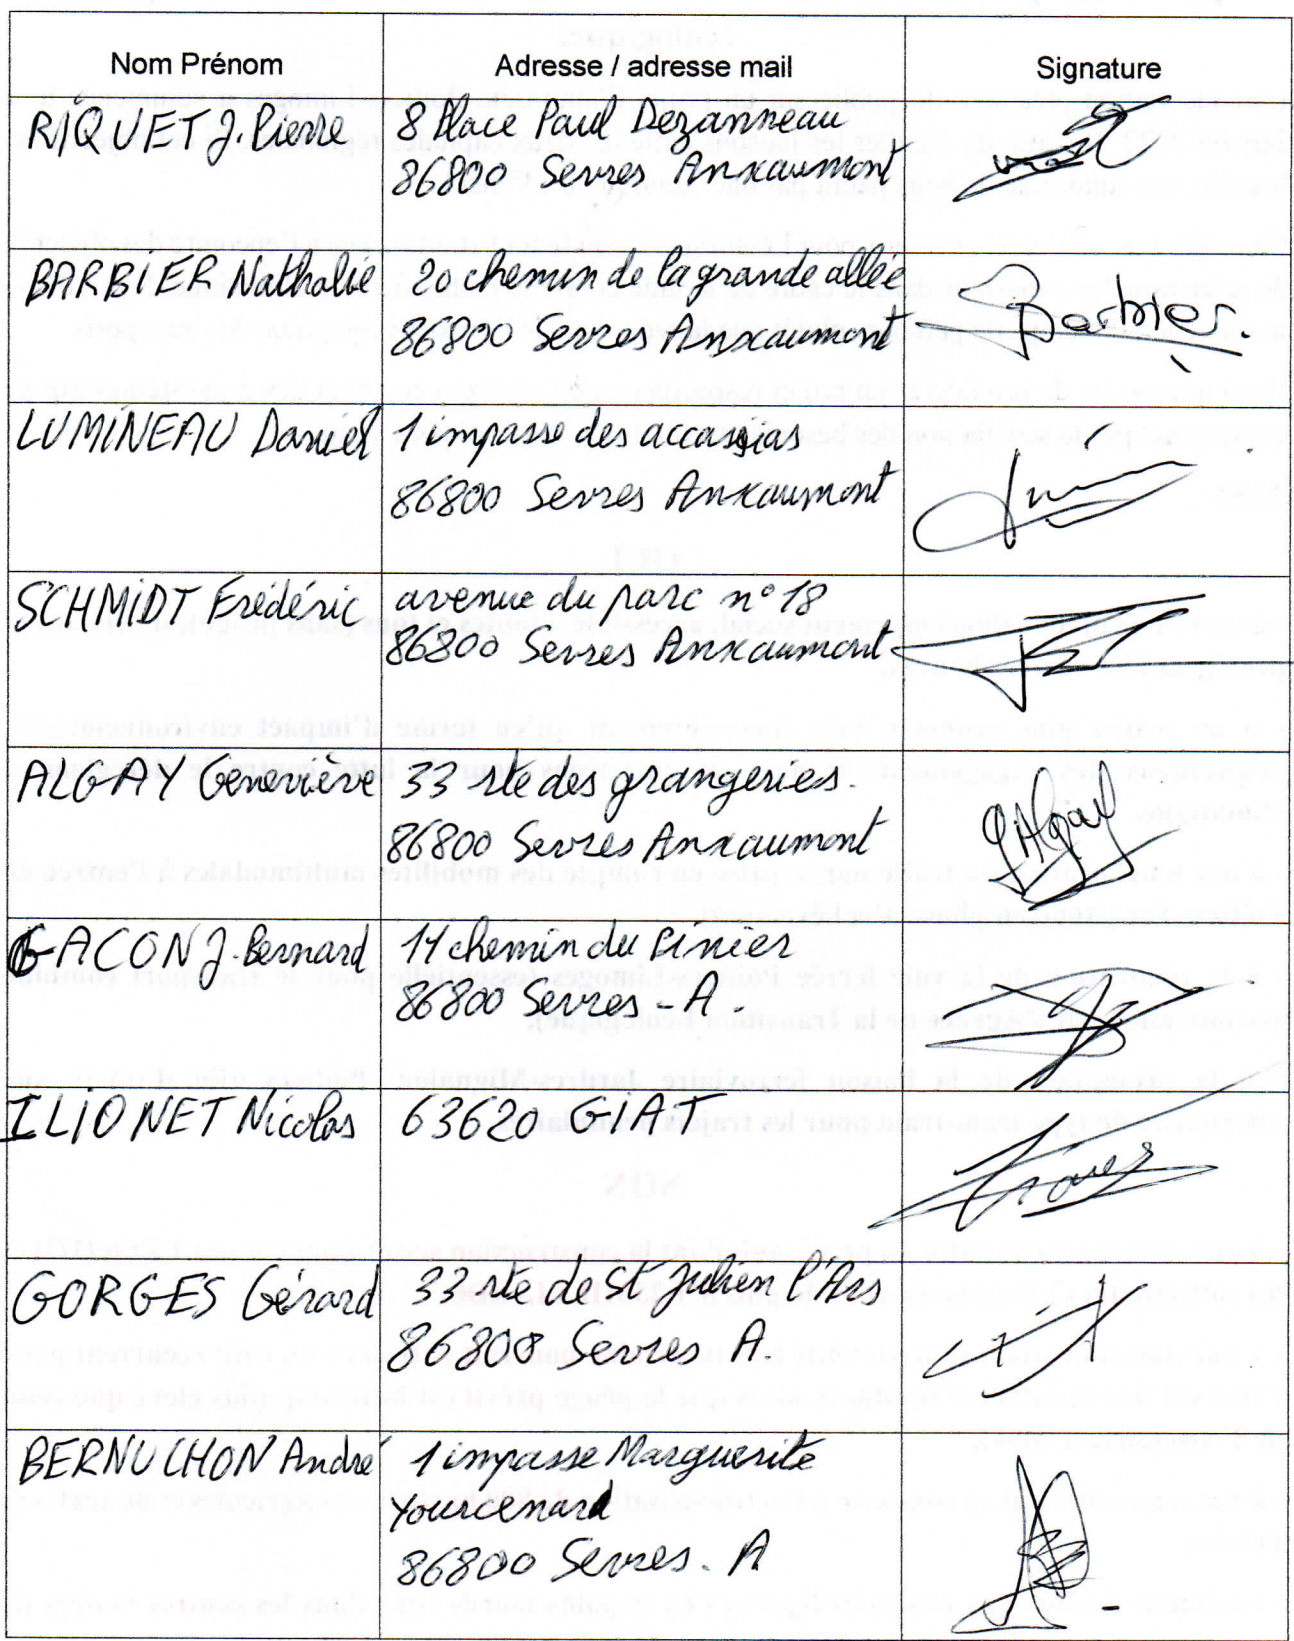 Nom Prénom Adresse / adresse mail Signature
RIQUET J Pierre 8 Place Paul Dezanneau
86800 Sevres Anxaumont
BARBIER Nathalie 20 chemin de la grande allée
86800 Sevres Anxaumont
Barbier.
LUMINEAU Daniel 1 impasse des accassias
86800 Sevres Anxaumont
SCHMIDT Frédéric avenue du parc n° 18
86800 Sevres Anxaumont
ALGAY Geneviève 33 rte des grangeries.
86800 Sevres Anxaumont
GACON J. Bernard 14 chemin du Pinier
86800 Sevres - A.
ILIONET Nicolas 63620 GIAT
GORGES Gérard 33 rte de St Julien l'Ars
86800 Sevres A.
BERNUCHON André 1 impasse Marguerite
Yourcenard
86800 Sevres. A